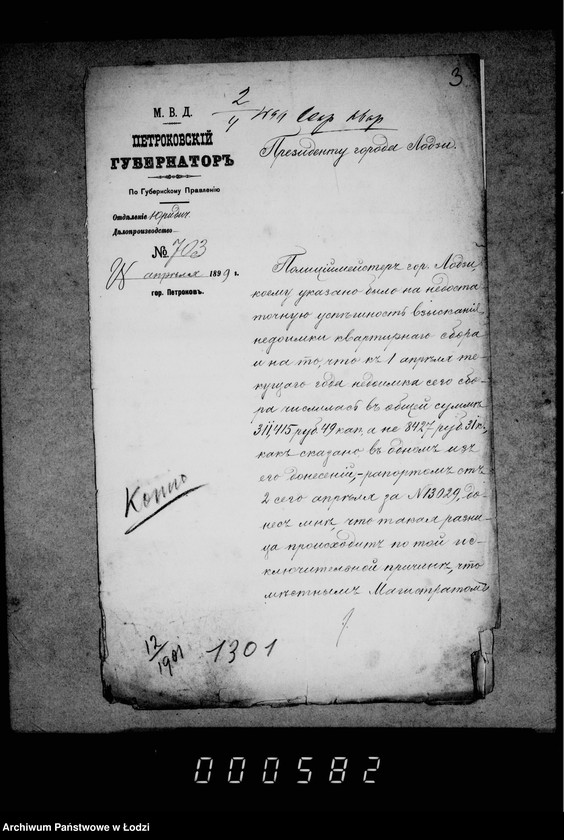 3
М. В. Д.
ПЕТРОКОВСКІЙ
ГУБЕРНАТОРЪ
По Губернскому Правленію
Отдѣленіе Юридич.
Дѣлопроизводство
№ 703
апрѣля 1899 г.
гор. Петроковъ.
Президенту города Лодзи.
Полиціймейстеръ гор. Лодзи,
коему указано было на недоста
точную успѣшность взысканія
недоимки квартирнаго сбора
и на то, что къ 1 апрѣля те-
кущаго года недоимка сего сбо-
ра числилась въ общей суммѣ
311,415 руб. 49 коп. а не 8427 руб 31 к.,
какъ сказано въ одномъ изъ
его донесеній, - рапортомъ отъ
2 сего апрѣля за № 13029, до-
несъ мнѣ, что такая разни-
ца происходитъ по той ис-
ключительной причинѣ, что
мѣстнымъ Магистратомъ
Копію
12/1901 1301
000582
Archiwum Państwowe w Łodzi